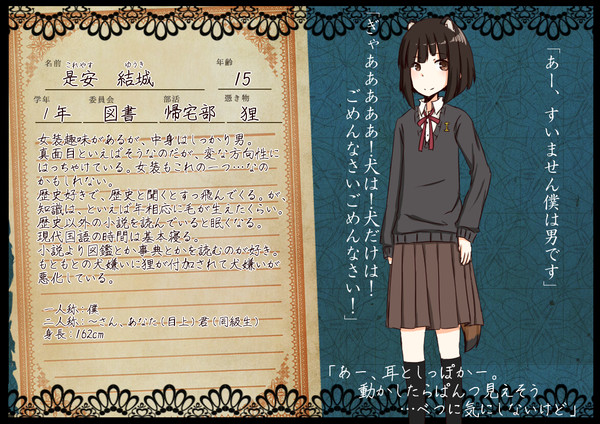 名前
これやす ゆうき
是安 結城
年齢
15
学年 委員会 部活 憑き物
1年 図書 帰宅部 狸
女装趣味があるが 中身はしっかり男。
真面目といえばそうなのだが、変な方向性に
はっちゃけている。女装もこれの一つ…なの
かもしれない。
歴史好きで、歴史と聞くとすっ飛んでくる。が、
知識は、といえば年相応に毛が生えたくらい。
歴史以外の小説を読んでいると眠くなる。
現代国語の時間は基本寝る。
小説より図鑑とか事典とかを読むのが好き。
もともとの犬嫌いに狸が付加されて犬嫌いが
悪化している。
一人称:僕
二人称:~さん、あなた(目上)君(同級生)
身長:162cm
「あー、すいません僕は男です」
「ぎゃあああああ!犬は!犬だけは!
ごめんなさいごめんなさい!」
「あー、耳としっぽかー。
動かしたらぱんつ見えそう
…べつに気にしないけど」